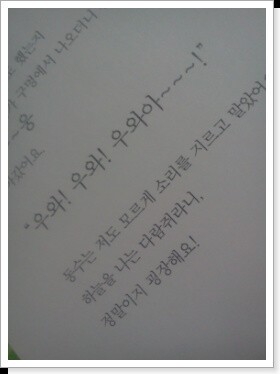 구멍에서 나오더니
"우와! 우와! 우와아~~~!"
동수는 저도 모르게 소리를 지르고 말았어
하늘을 나는 다람쥐라니,
정말이지 굉장해요!